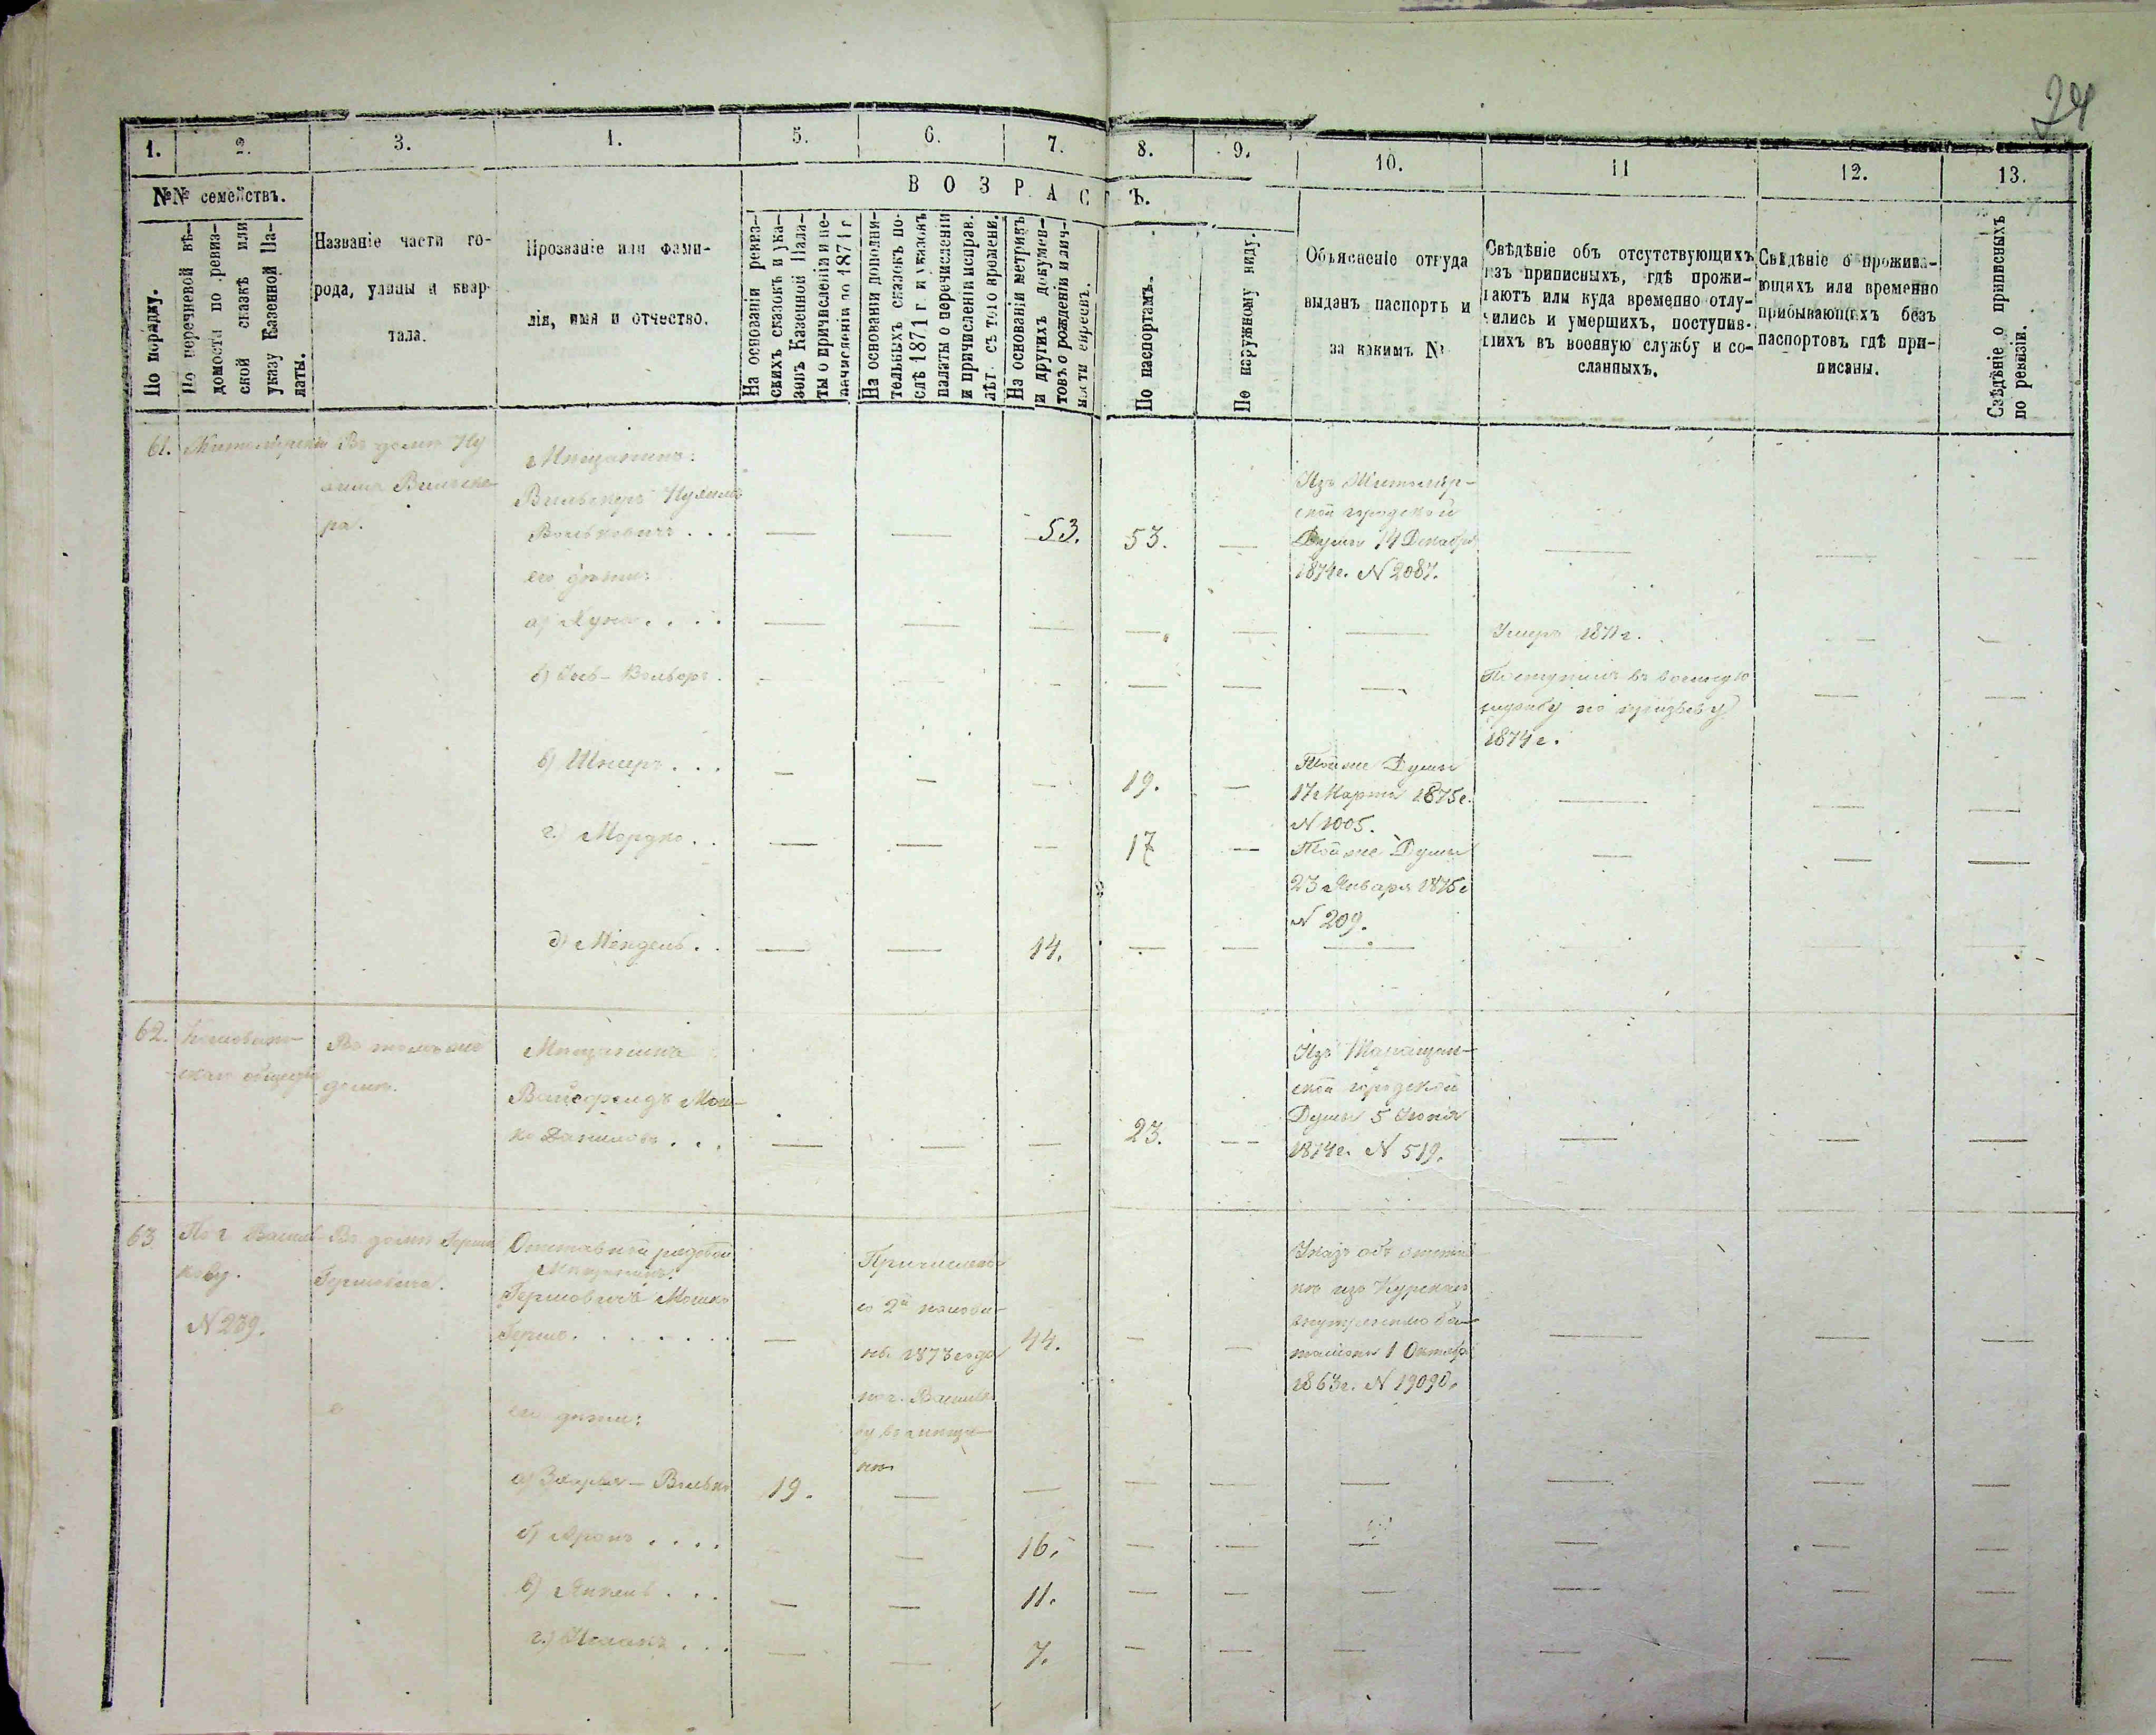 24
1. 2. 3. 4. 5. 6. 7. 8. 9. 10. 11 12. 13.
№№ семействъ.
По порядку.
По перечневой вѣ-
домости по ревиз-
ской сказкѣ или
указу Казенной Па-
латы.
Названіе части го-
рода, улицы и квар-
тала.
Прозваніе или фами-
лія, имя и отчество.
ВОЗРАСТЪ.
На основаніи ревиз-
скихъ сказокъ и ука-
зовъ Казенной Пала-
ты о причисленіи и не-
причисленіи до 1871 г
На основаніи дополни-
тельныхъ сказокъ по-
слѣ 1871 г. и указовъ
палаты о перечисленіи
и причисленіи исправ.
лѣт. съ того времени.
На основаніи метрикъ
и другихъ докумен-
товъ о рожденіи и лич-
ности евреевъ.
По паспортамъ.
По наружному виду.
Объясненіе откуда
выданъ паспортъ и
за какимъ №
Свѣдѣніе объ отсутствующихъ
изъ приписныхъ, гдѣ прожи-
ваютъ или куда временно отлу-
чились и умершихъ, поступив-
шихъ въ военную службу и со-
сланныхъ.
Свѣдѣніе о прожива-
ющихъ или временно
прибывающихъ безъ
паспортовъ гдѣ при-
писаны.
Свѣдѣніе о приписныхъ
по ревизіи.
61.
Въ домѣ Ну
Вильскe-
ра.
Мѣщанинъ:
Вильскеръ
Вольковичъ . . .
53.
53.
Изъ Житомір-
ской городской
Думы 14 Декабря
1874г. N 2087.
его дѣти:
а) . . . .
Умеръ 1871 г.
б) Іось-Вольфъ .
Поступилъ въ военную
службу по призыву
1874 г.
в) Шмеръ . . .
19.
Той же Думы
17 Марта 1875г.
N 1005.
г) Мордко . .
17
Той же Думы
23 Января 1875г
N 209.
д) Мендель . .
14.
62.
Въ томъ же
домѣ.
Мѣщанинъ
Мош-
ко . . .
23.
Изъ Таращан-
ской городской
Думы 5 Іюня
1874г. N 519.
63
По г. Василь-
кову.
N 239.
Въ домѣ Герша
Гершовича.
Отставной рядовой
Мѣщанинъ:
Гершовичъ Мошко
Гершо . . . . . . .
Причисленъ
со 2й полови-
нѣ 1873 года
по г. Василько-
ву въ мѣща-
не
44.
Указъ объ отстав-
кѣ изъ Курскаго
внутренняго ба-
таліона 1 Октября
1863г. N 19090.
его дѣти:
а) - Волько
19.
б) Аронъ . . . .
16.
в) Янкель . . .
11.
г) . . .
7.